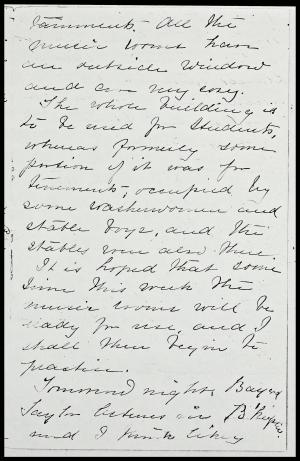 tainments. All the
music rooms have
an outside window
and are very cosy.
The whole building is
to be used for students,
whereas formerly some
portion of it was for
tenements, occupied by
some washerwomen and
stable boys, and the
stables were also there.
It is hoped that some
time this week the
music rooms will be
ready for use, and I
shall then begin to
practice.
Tomorrow night, Bayard
Taylor lectures in
and I think likely